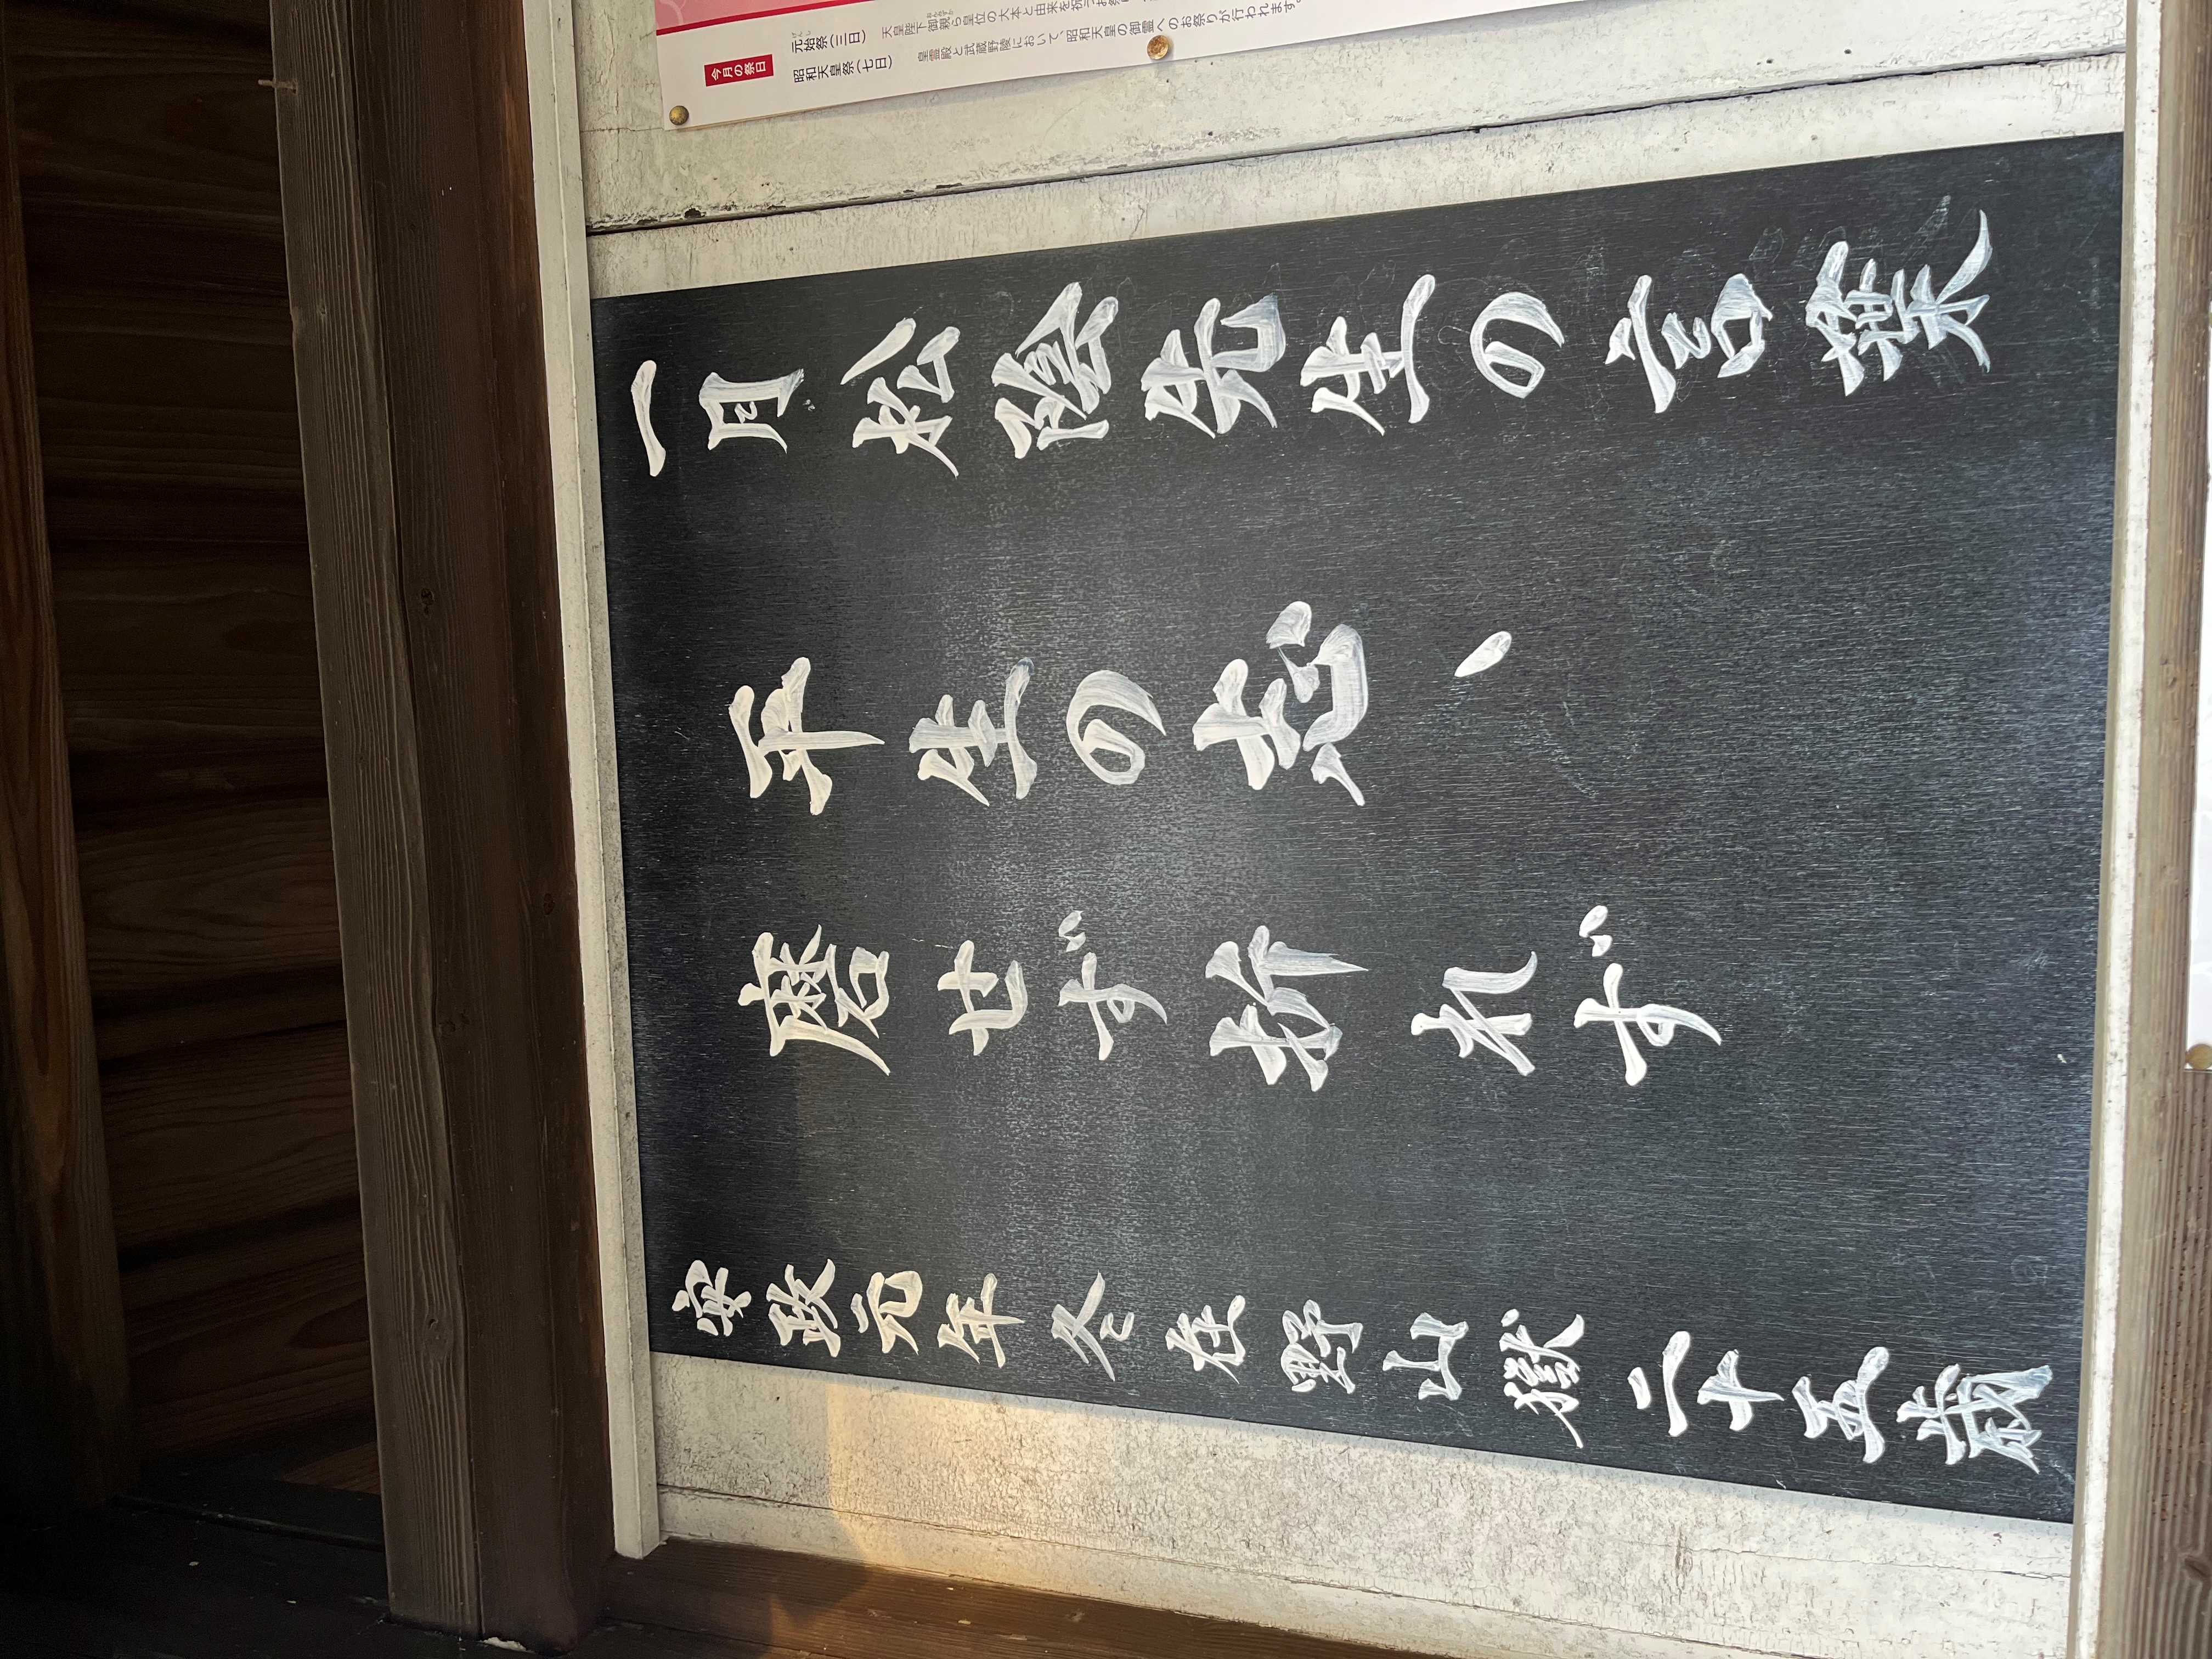 今月の祭日
元始祭(三日) 天皇陛下御親ら皇位の大本と由来を祝うお祭
昭和天皇祭(七日) 皇霊殿と武蔵野陵において、昭和天皇の御霊へのお祭りが行われます。
一月松陰先生の言葉
平生の志、
磨せず折れず
安政元年冬在野山獄二十五歳